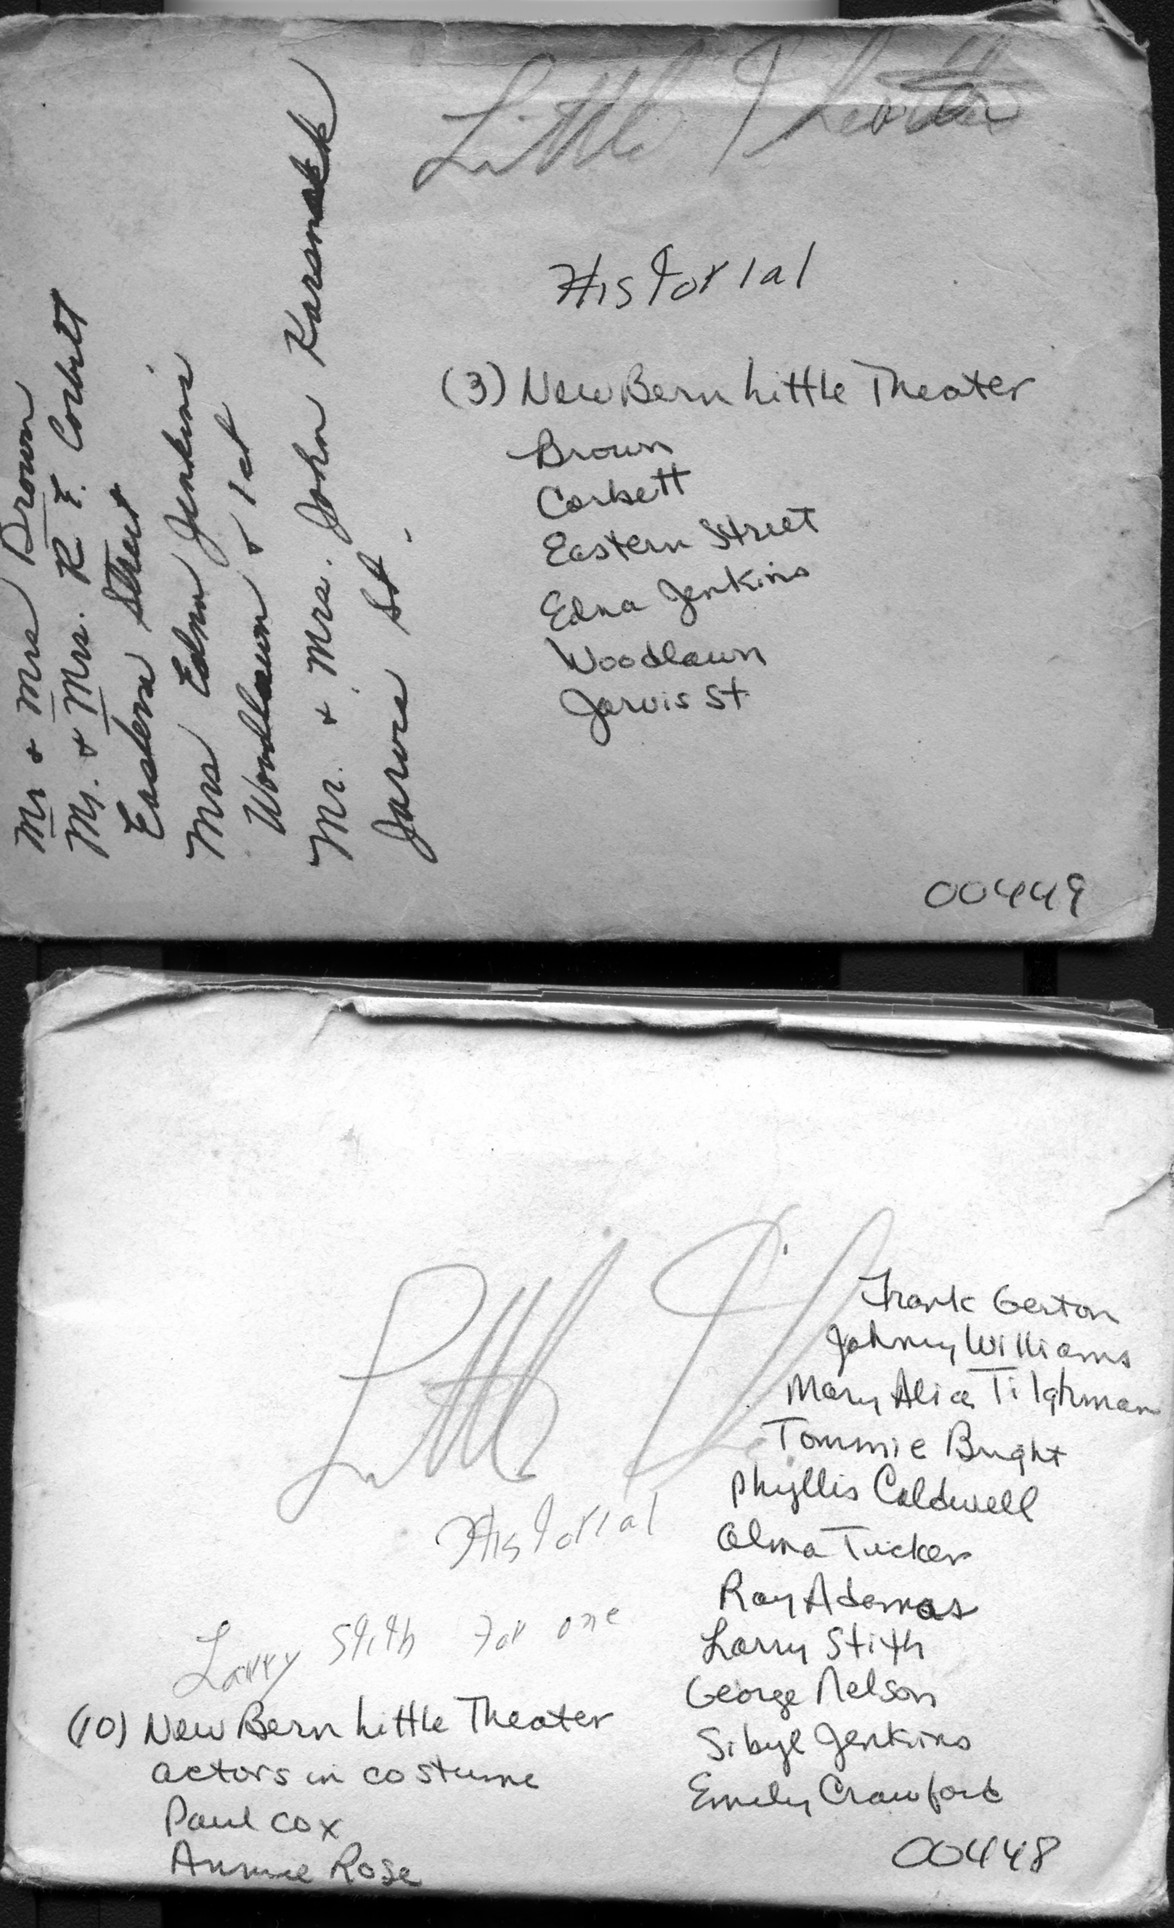 Little Theater
Historial
(3) New Bern Little Theater
Brown
Corbett
Eastern Street
Edna Jenkins
Woodlawn
Jarvis St
00449
Mr & Mrs Brown
Mr. & Mrs. R. E. Corbett
Eastern Street
Mrs Edna Jenkins
Woodlawn & 1st
Mr. & Mrs. John
Jarvis St.
Little Th
Historial
Larry Stith for one
(10) New Bern Little Theater
actors in costume
Paul Cox
Annie Rose
Frank Gerton
Johnny Williams
Mary Alice Tilghman
Tommie Bright
Phyllis Caldwell
Alma Tucker
Ray Ademas
Larry Stith
George Nelson
Sibyl Jenkins
Emily Crawford
00448